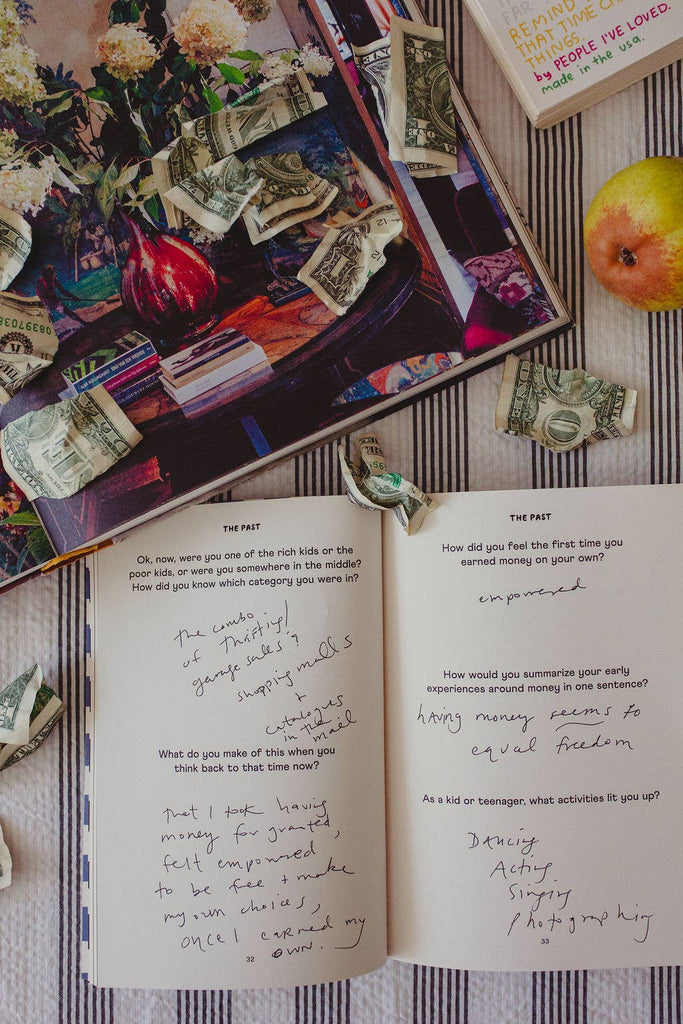 REMIND
THAT TIME CA
THINGS.
by PEOPLE I'VE LOVED.
made in the usa.
THE PAST
Ok, now, were you one of the rich kids or the
poor kids, or were you somewhere in the middle?
How did you know which category you were in?
the combo
of thrifting/
garage sales?
shopping malls
+
catalogues
in the
mail
What do you make of this when you
think back to that time now?
that I took having
money for granted,
felt empowered
to be free + make
my own choices,
once I earned my
own.
32
THE PAST
How did you feel the first time you
earned money on your own?
empowered
How would you summarize your early
experiences around money in one sentence?
having money seems to
equal freedom
As a kid or teenager, what activities lit you up?
Dancing
Acting
Singing
photographing
33